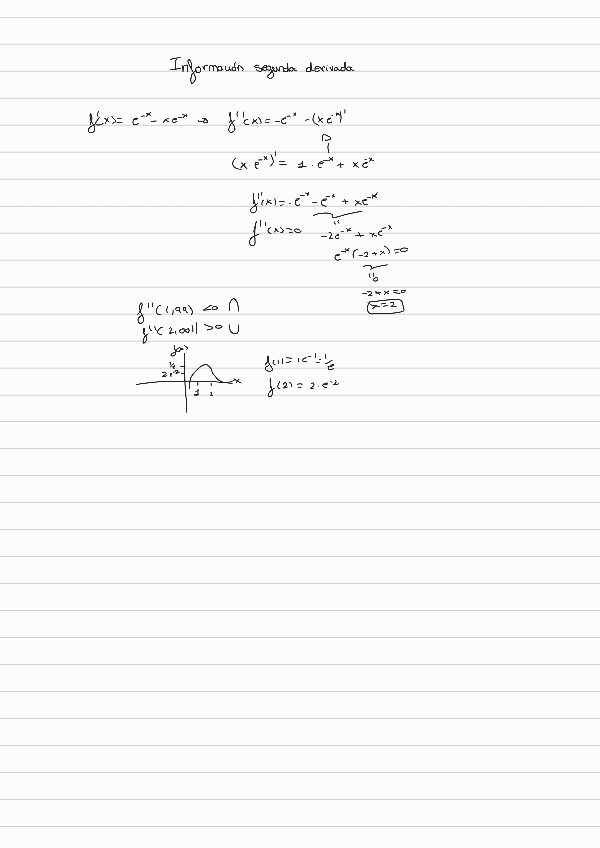 Información segunda derivada
f'(x) = e^-x - xe^-x → f''(x) = -e^-x - (xe^-x)'
(x·e^-x)' = 1·e^-x + xe^-x
f''(x) = -e^-x - e^-x + xe^-x
f''(x) = 0 -2e^-x + xe^-x
e^-x(-2+x) = 0
-2+x=0
x=2
f''(1,99) <0 ∩
f''(2,001) >0 ∪
f(x)
1/e
2e^-2
1 2 x
f(1) = 1e^-1 = 1/e
f(2) = 2·e^-2